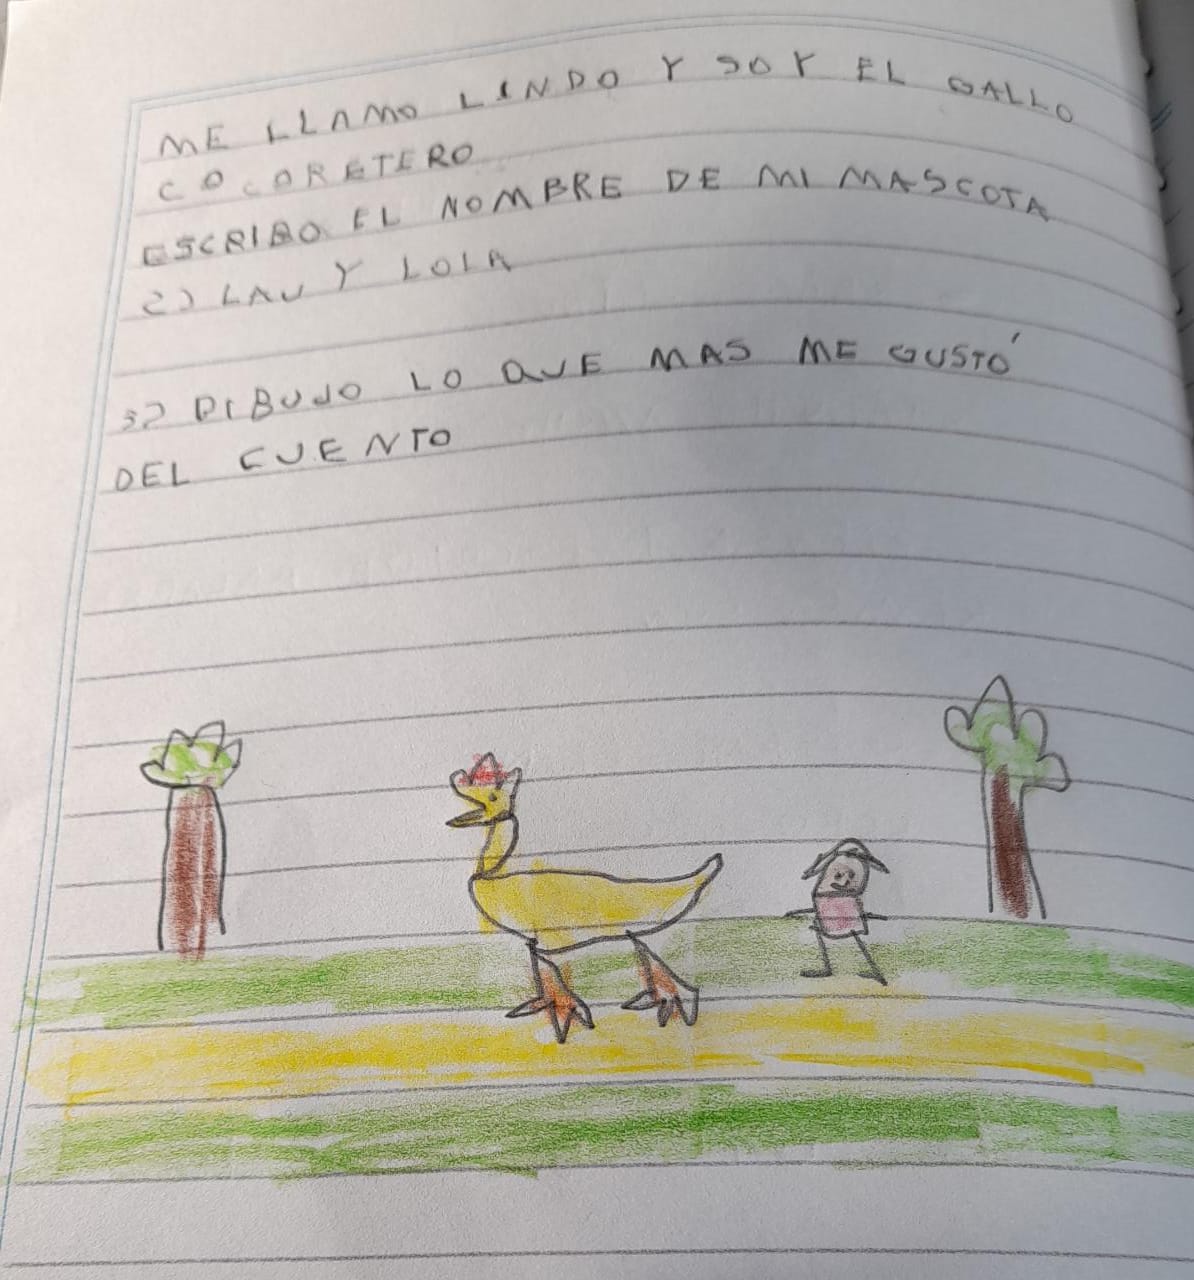 ME LLAMO LINDO Y SOY EL GALLO
COCORETERO
ESCRIBO EL NOMBRE DE MI MASCOTA
2) LAU Y LOLA
3) DIBUJO LO QUE MAS ME GUSTÓ
DEL CUENTO